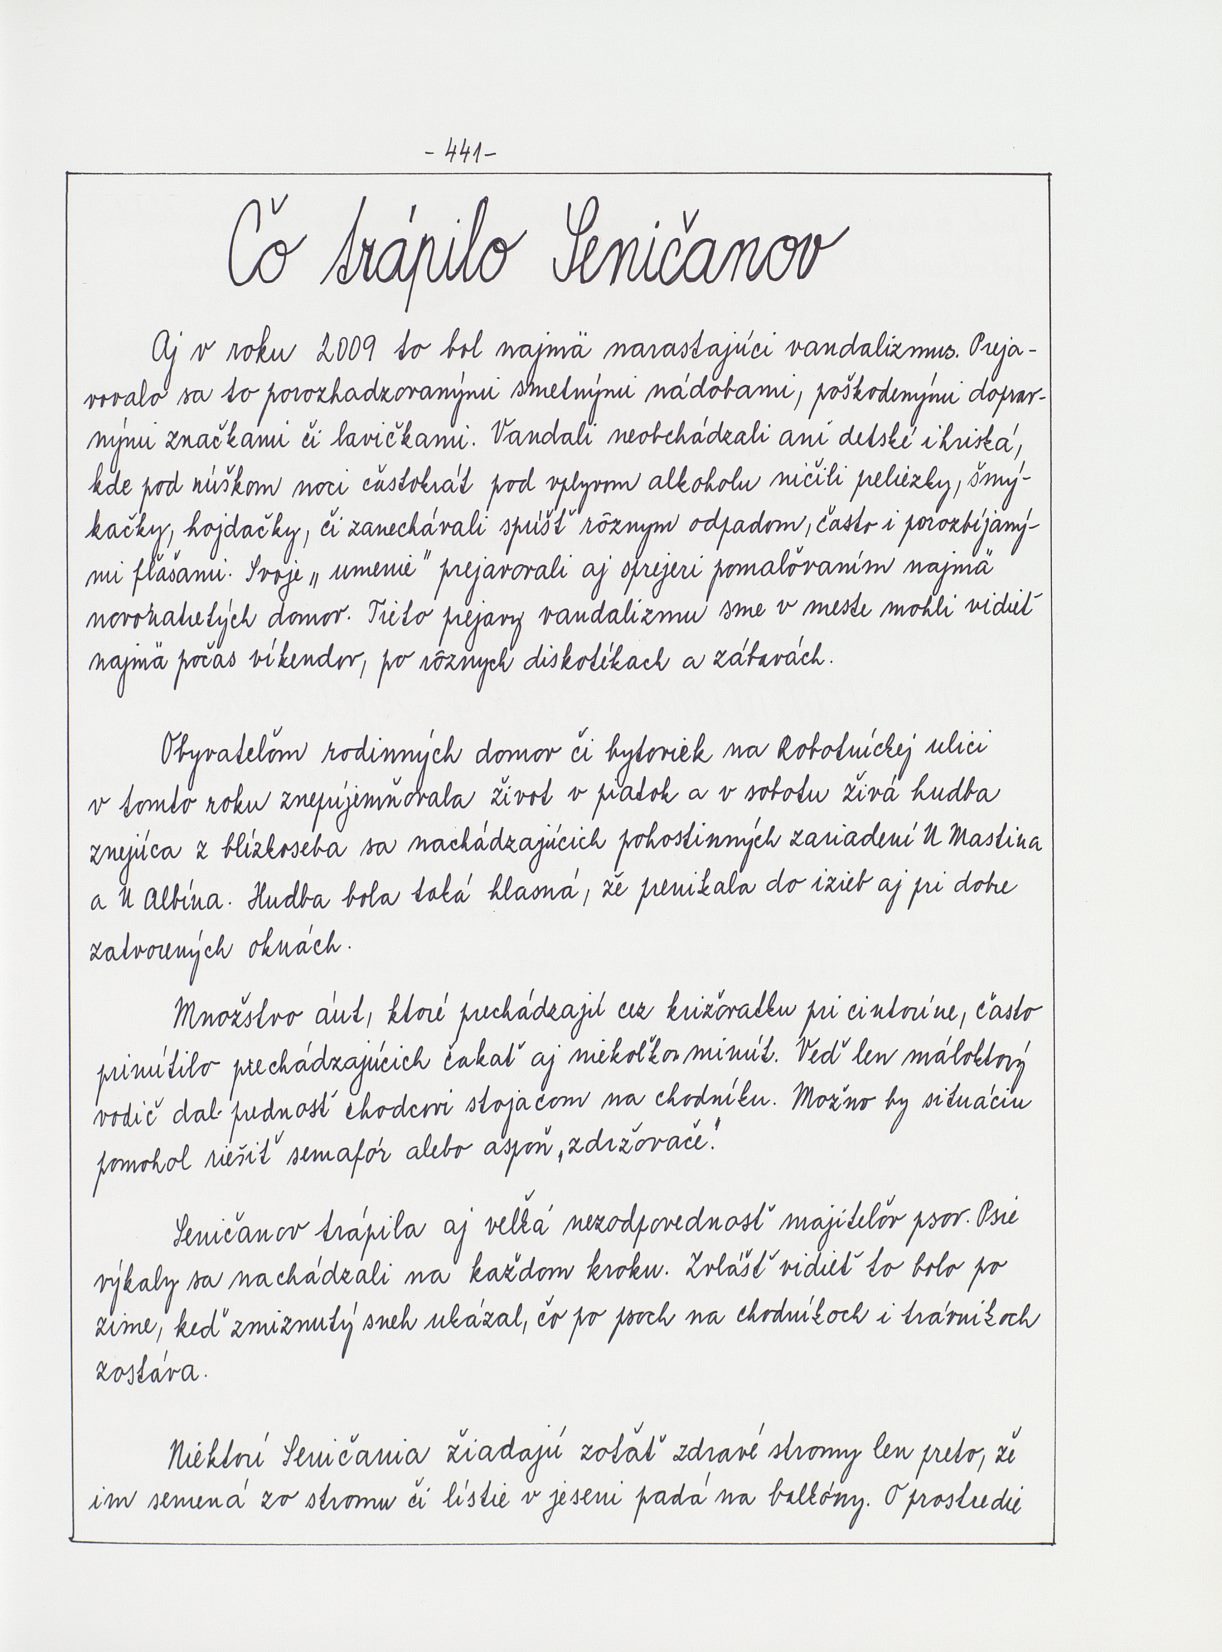 - 441 -
Čo trápilo Seničanov
Aj v roku 2009 to bol najmä narastajúci vandalizmus. Preja-
vovalo sa to porozhadzovanými smetnými nádobami, poškodenými doprav-
nými značkami či lavičkami. Vandali neobchádzali ani detské ihriská,
kde pod rúškom noci častokrát pod vplyvom alkoholu ničili preliezky, šmý-
kačky, hojdačky, či zanechávali spúšť rôznym odpadom, často i porozbíjaný-
mi fľašami. Svoje „umenie" prejavovali aj sprejeri pomaľovaním najmä
novozatretých domov. Tieto prejavy vandalizmu sme v meste mohli vidieť
najmä počas víkendov, po rôznych diskotékach a zábavách.
Obyvateľom rodinných domov či bytoviek na Robotníckej ulici
v tomto roku znepríjemňovala život v piatok a v sobotu živá hudba
znejúca z blízkoseba sa nachádzajúcich pohostinných zariadení U Mastina
a U Albína. Hudba bola taká hlasná, že prenikala do izieb aj pri dobre
zatvorených oknách.
Množstvo áut, ktoré prechádzajú cez križovatku pri cintoríne, často
prinútilo prechádzajúcich čakať aj niekoľko minút. Veď len máloktorý
vodič dal prednosť chodcovi stojacom na chodníku. Možno by situáciu
pomohol riešiť semafór alebo aspoň „zdržovače".
Seničanov trápila aj veľká nezodpovednosť majiteľov psov. Psie
výkaly sa nachádzali na každom kroku. Zvlášť vidieť to bolo po
zime, keď zmiznutý sneh ukázal, čo po psoch na chodníkoch i trávnikoch
zostáva.
Niektorí Seničania žiadajú zoťať zdravé stromy len preto, že
im semená zo stromu či lístie v jeseni padá na balkóny. O prostredie